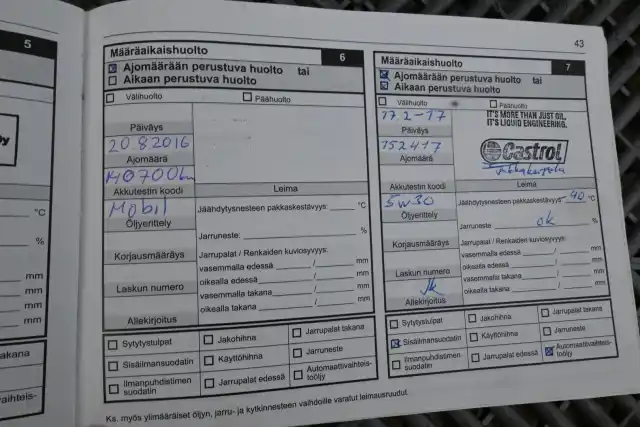 5
°C
%
mm
mm
mm
mm
akana
vaihteis-
Määräaikaishuolto 6
Ajomäärään perustuva huolto tai
Aikaan perustuva huolto
Välihuolto Päähuolto
Päiväys
20.8.2016
Ajomäärä
140700km
Akkutestin koodi
Mobil
Öljyerittely
Korjausmääräys
Laskun numero
Allekirjoitus
Leima
Jäähdytysnesteen pakkaskestävyys: °C
Jarruneste: %
Jarrupalat / Renkaiden kuviosyvyys:
vasemmalla edessä / mm
oikealla edessä / mm
vasemmalla takana / mm
oikealla takana / mm
Sytytystulpat Jakohihna Jarrupalat takana
Sisäilmansuodatin Käyttöhihna Jarruneste
Ilmanpuhdistimen suodatin Jarrupalat edessä Automaattivaihteis-
toöljy
Ks. myös ylimääräiset öljyn, jarru- ja kytkinnesteen vaihdoille varatut leimausruudut.
43
Määräaikaishuolto 7
Ajomäärään perustuva huolto tai
Aikaan perustuva huolto
Välihuolto Päähuolto
17 2-17
Päiväys
152417
Ajomäärä
Akkutestin koodi
5w30
Öljyerittely
Korjausmääräys
Laskun numero
Allekirjoitus
IT'S MORE THAN JUST OIL.
IT'S LIQUID ENGINEERING.
Castrol
Leima
Jäähdytysnesteen pakkaskestävyys: 40 °C
Jarruneste ok %
Jarrupalat / Renkaiden kuviosyvyys:
vasemmalla edessä / mm
oikealla edessä / mm
vasemmalla takana / mm
oikealla takana / mm
Sytytystulpat Jakohihna Jarrupalat takana
Sisäilmansuodatin Käyttöhihna Jarruneste
Ilmanpuhdistimen
suodatin Jarrupalat edessä Automaattivaihteis-
toöljy